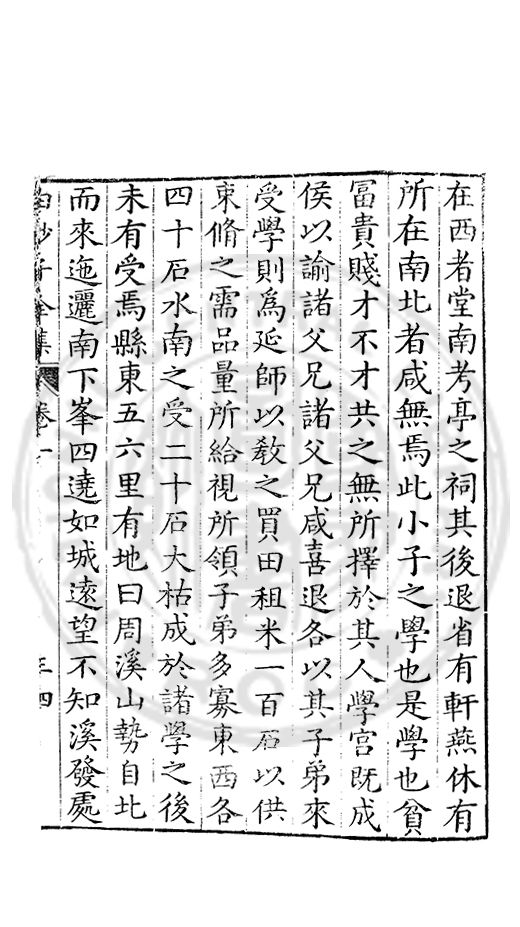 在西者堂南考亭之祠其後退省有軒燕休有
所在南北者咸無焉此小子之學也是學也貧
富貴賤才不才共之無所擇於其人學宮既成
侯以諭諸父兄諸父兄咸喜退各以其子弟來
受學則為延師以敎之買田租米一百石以供
束脩之需品量所給視所領子弟多寡東西各
四十石水南之受二十石大枯成於諸學之後
未有受焉縣東五六里有地曰周溪山勢自北
而來迤邐南下峯四遶如城遠望不知溪發處
白沙子全集 卷一 三四